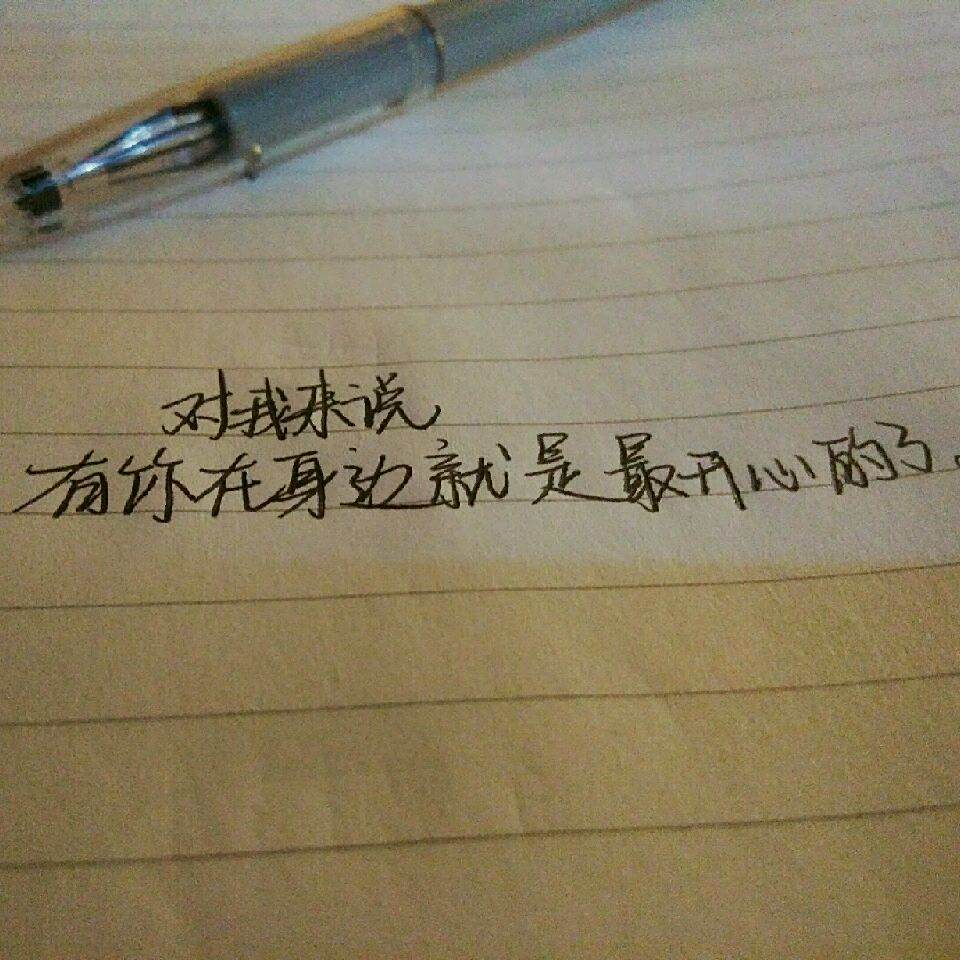 对我来说
有你在身边就是最开心的了.